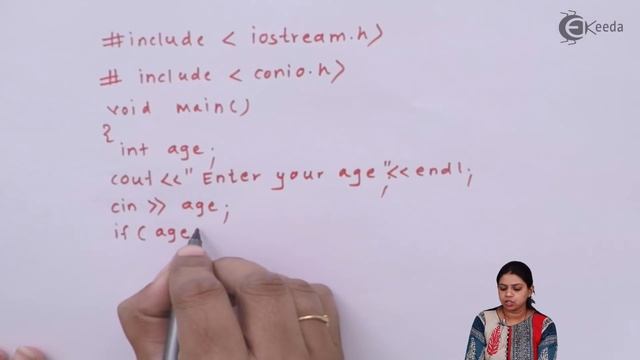 Ekeeda
#include < iostream.h>
# include < conio.h>
void main()
{
int age;
cout << " Enter your age "<< endl;
cin >> age;
if ( age